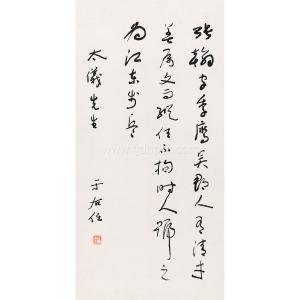 張翰字季鷹吳郡人有清才
善屬文而縱任不拘時人號之
為江東步兵
太儀先生
于右任